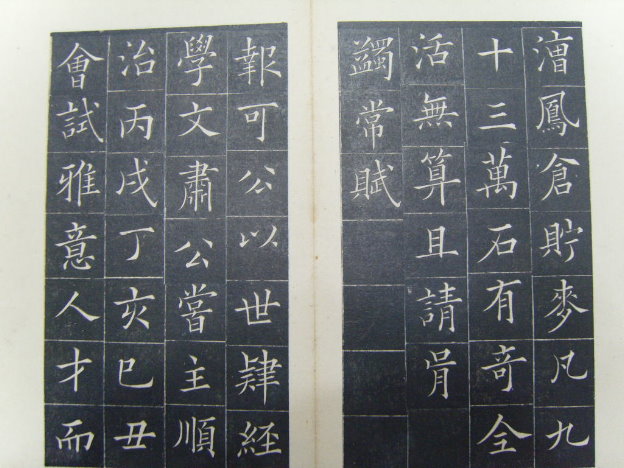 漕鳳倉貯麥凡九
十三萬石有奇全
活無算且請胥
蠲常賦
報可公以世肄經
學文肅公嘗主順
治丙戌丁亥巳丑
會試雅意人才而